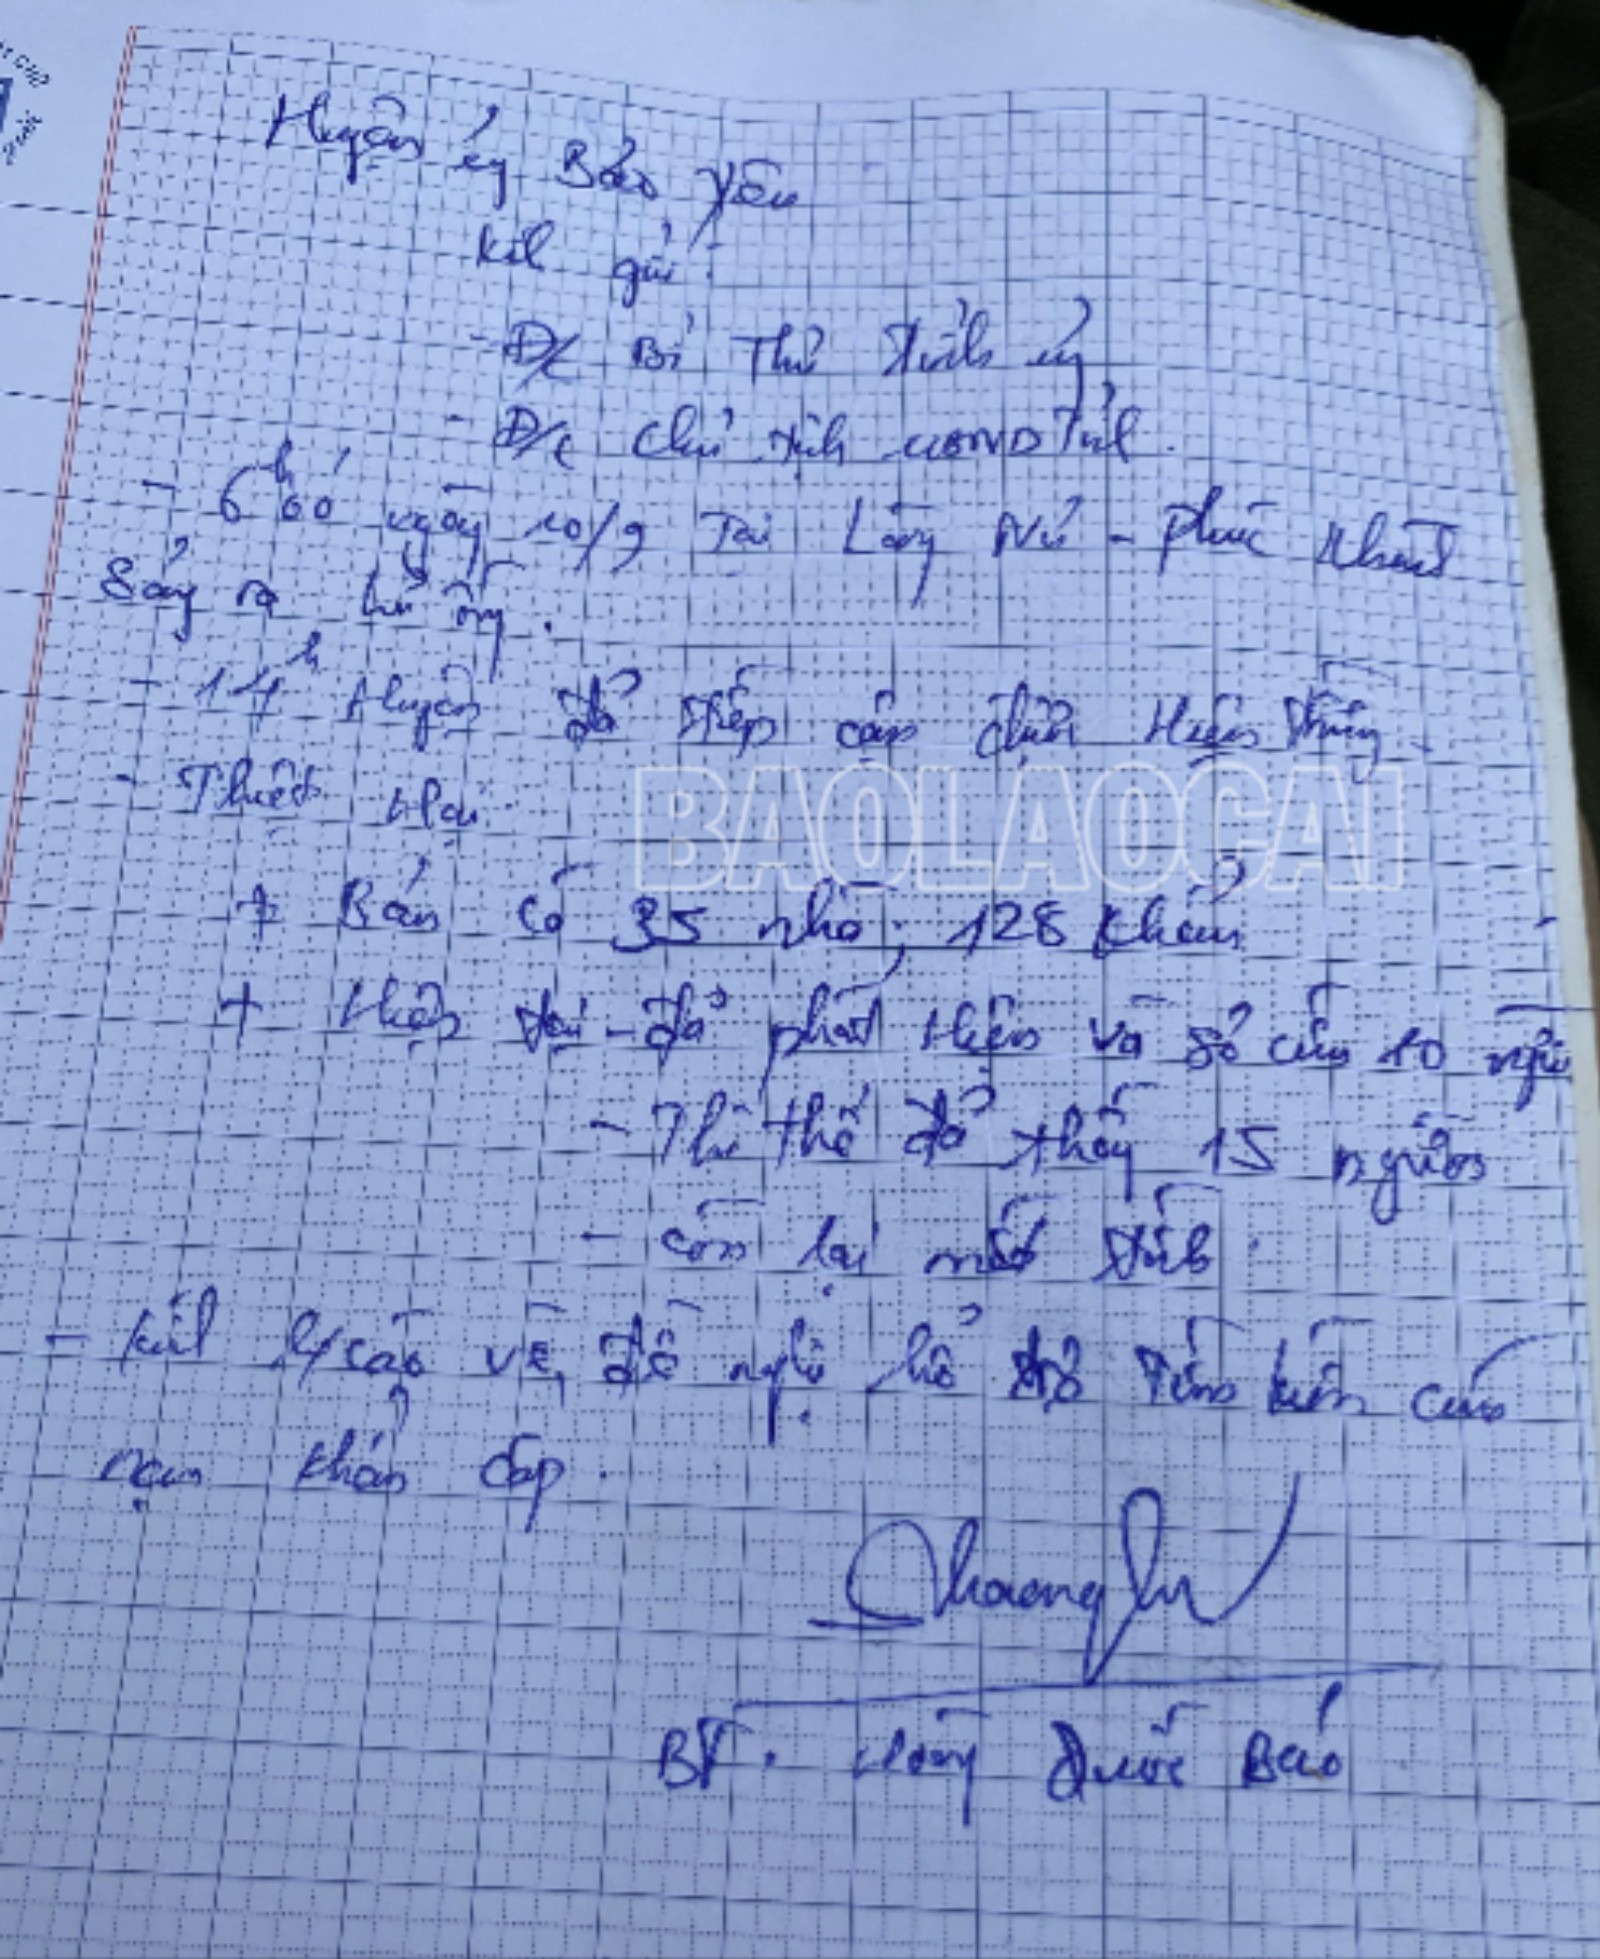 Huyện ủy Bảo Yên
Kính gửi:
- Đ/c Bí Thư Tỉnh ủy
- Đ/c Chủ tịch UBND Tỉnh.
- 6h00 ngày 10/9 Tại Làng Nủ - Phúc Khánh
Sảy ra lũ ống.
- 14h Huyện đã tiếp cận được Hiện trường
- Thiệt Hại:
+ Bản có 35 nhà; 128 khẩu
+ Hiện tại - đã phát hiện và sơ cứu 10 người
- Thi thể đã thấy 15 người
- Còn lại mất tích.
- Kính b/cáo và đề nghị hỗ trợ tìm kiếm cứu
nạn khẩn cấp.
BT. Hoàng Quốc Bảo
BAOLAOCAI